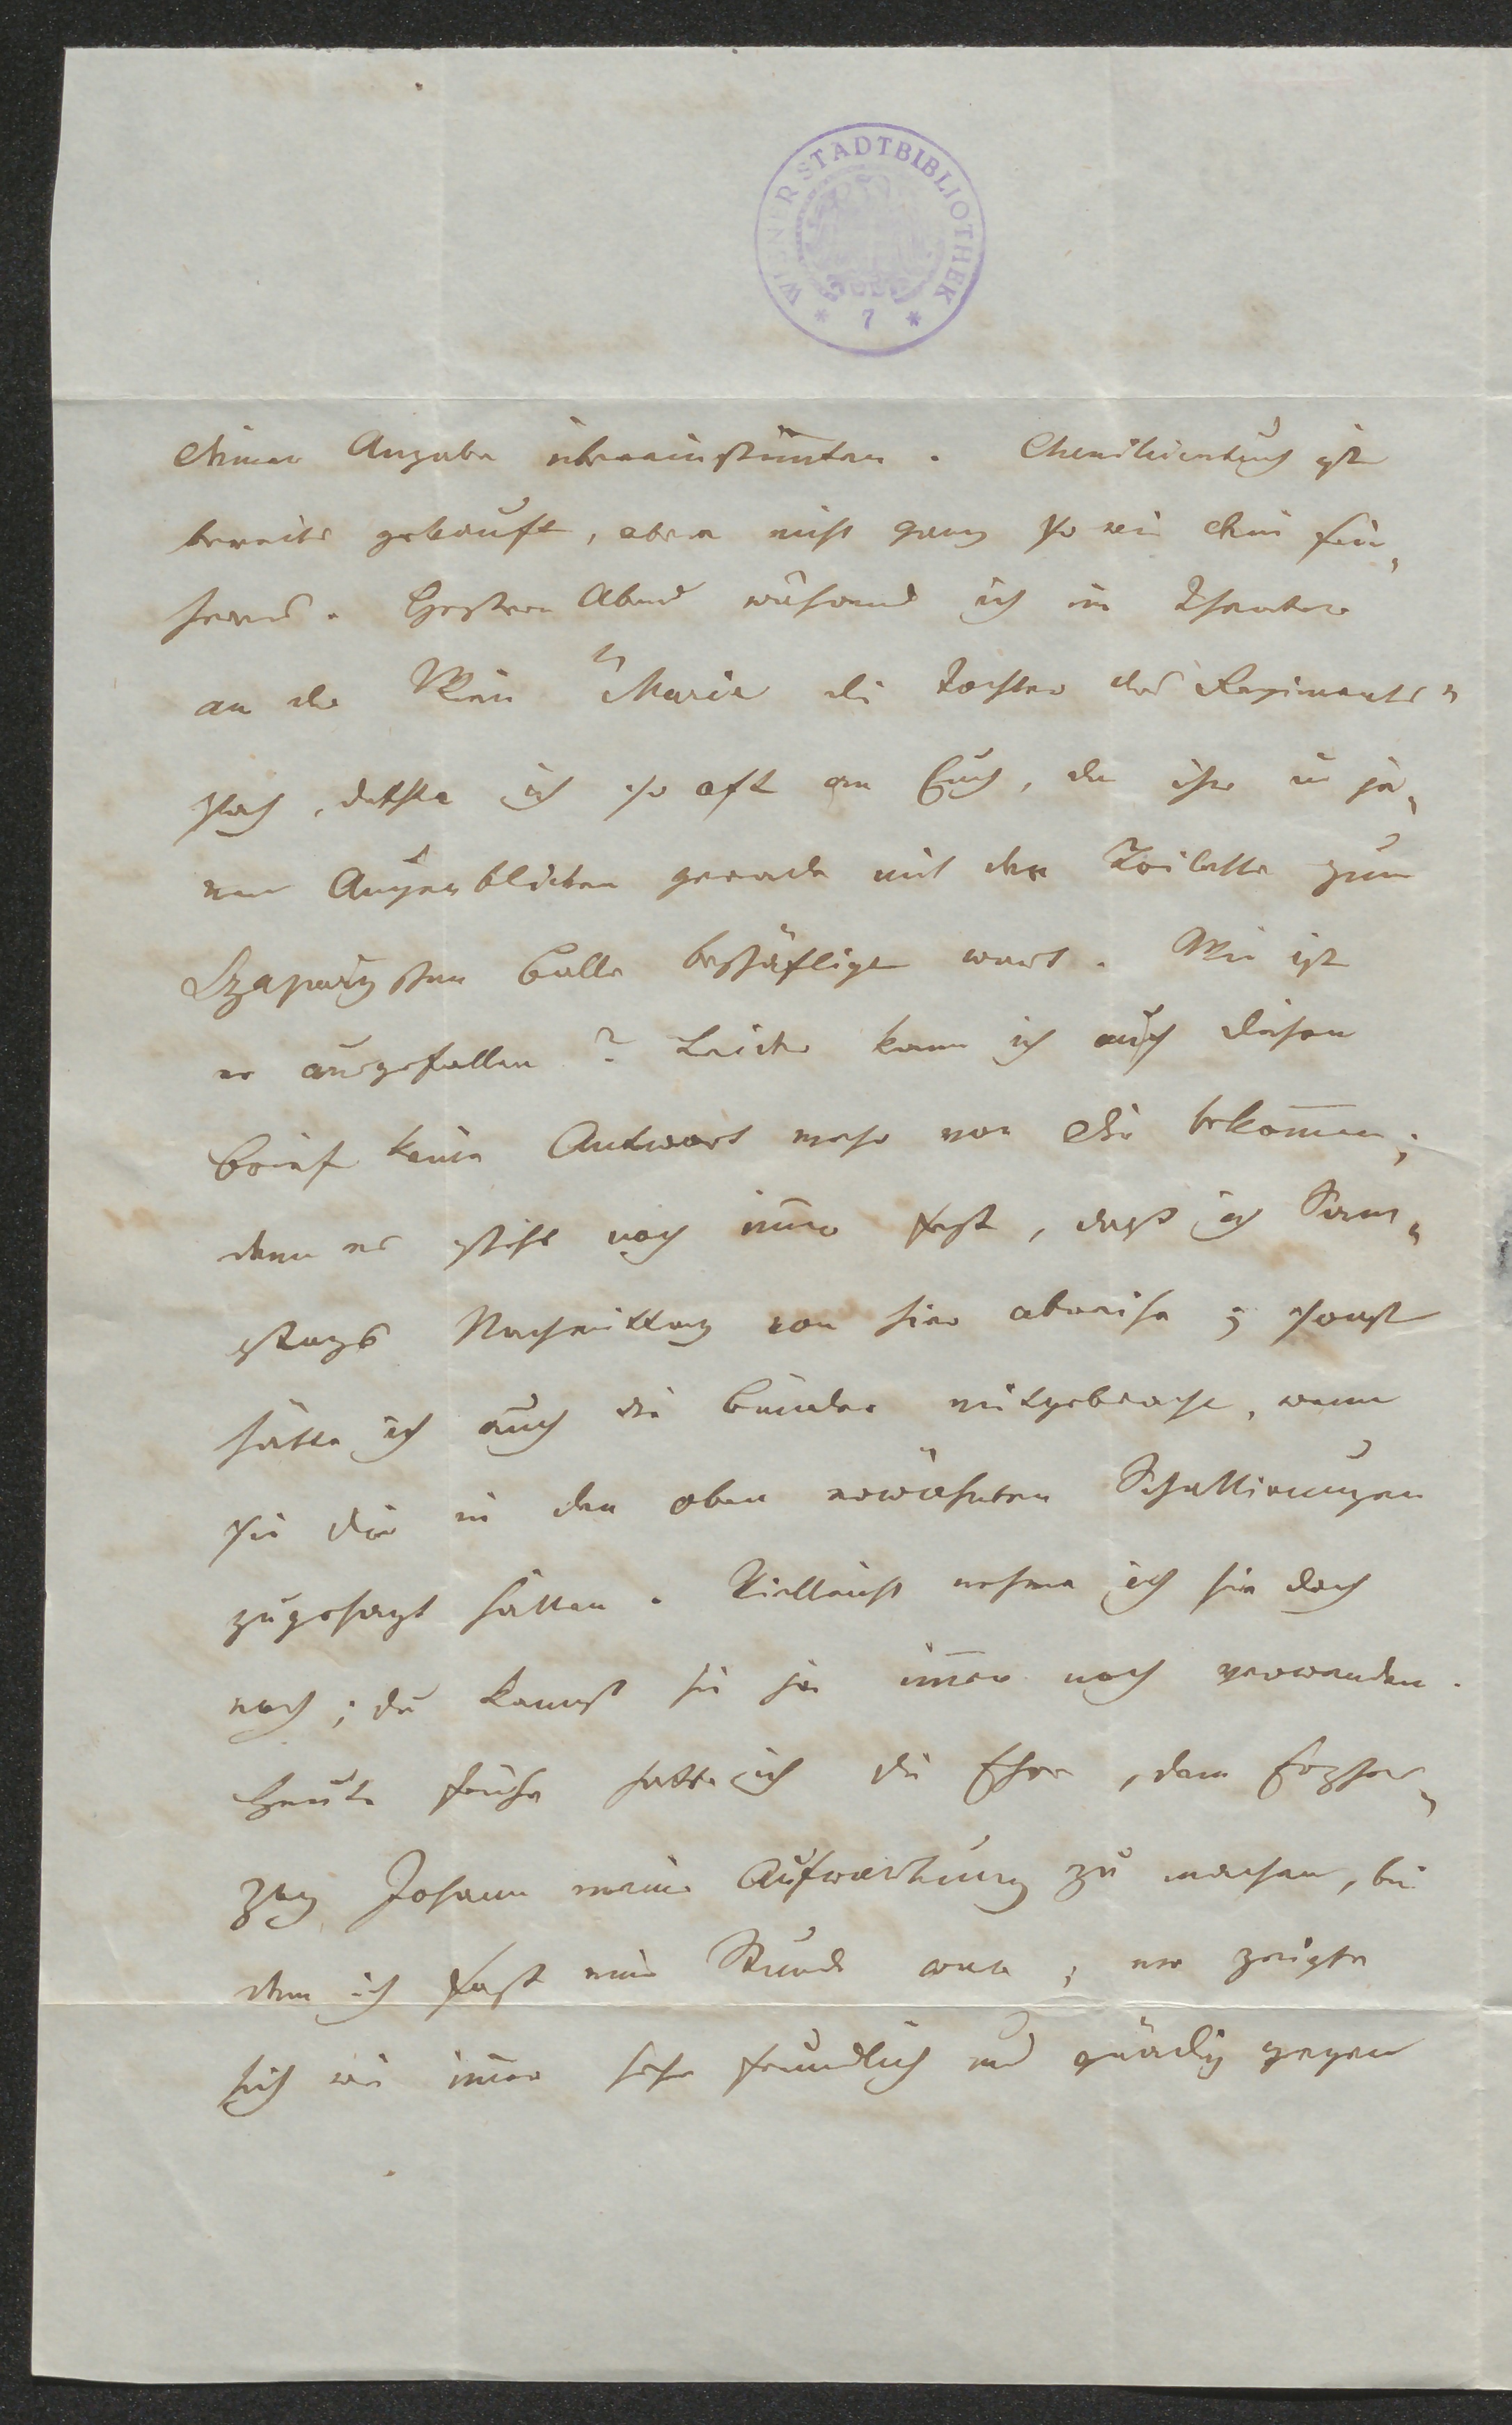 WIENER STADTBIBLIOTHEK
* 7 *
deiner Angabe übereinstim̅ten. Chenilientuch ist
bereits gekauft, aber nicht ganz so wie
Gestern Abend während ich im Theater
an der Wien "Marie die Tochter des Regiments"
sah, dachte ich so oft an Euch, da ihr in je-
nen Augenblicken gerade mit der Toilette zum
Szaparyschen Balle beschäftigt wart. Wie ist
er ausgefallen? Leider kann ich auf diesen
Brief keine Antwort mehr von Dir bekom̅en;
denn es steht noch im̅er fest, daß ich Sams-
tags Nachmittag von hier abreise; sonst
hätte ich auch die Bänder mitgebracht, wenn
sie dir in den oben erwähnten Schattirungen
zugesagt hätten. Vielleicht nehme ich sie doch
noch; du kannst sie ja im̅er noch verwenden.
Heute früh hatte ich die Ehre, dem Erzher-
zog Johann meine Aufwartung zu machen, bei
dem ich fast eine Stunde war; er zeigte
sich wie im̅er sehr freundlich und gnädig gegen